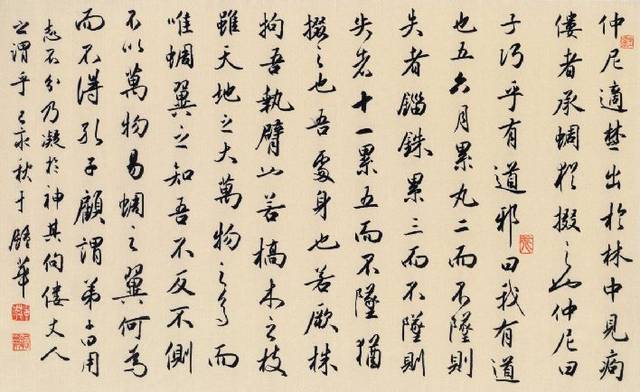 仲尼適楚出於林中見痀
僂者承蜩猶掇之也仲尼曰
子巧乎有道邪曰我有道
也五六月累丸二而不墜則
失者錙銖累三而不墜則
失者十一累五而不墜猶
掇之也吾處身也若厥株
拘吾執臂也若槁木之枝
雖天地之大萬物之多而
唯蜩翼之知吾不反不側
不以萬物易蜩之翼何為
而不得孔子顧謂弟子曰用
志不分乃凝於神其佝僂丈人
之謂乎 秋于華